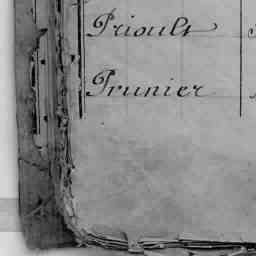 Prioult
Prunier